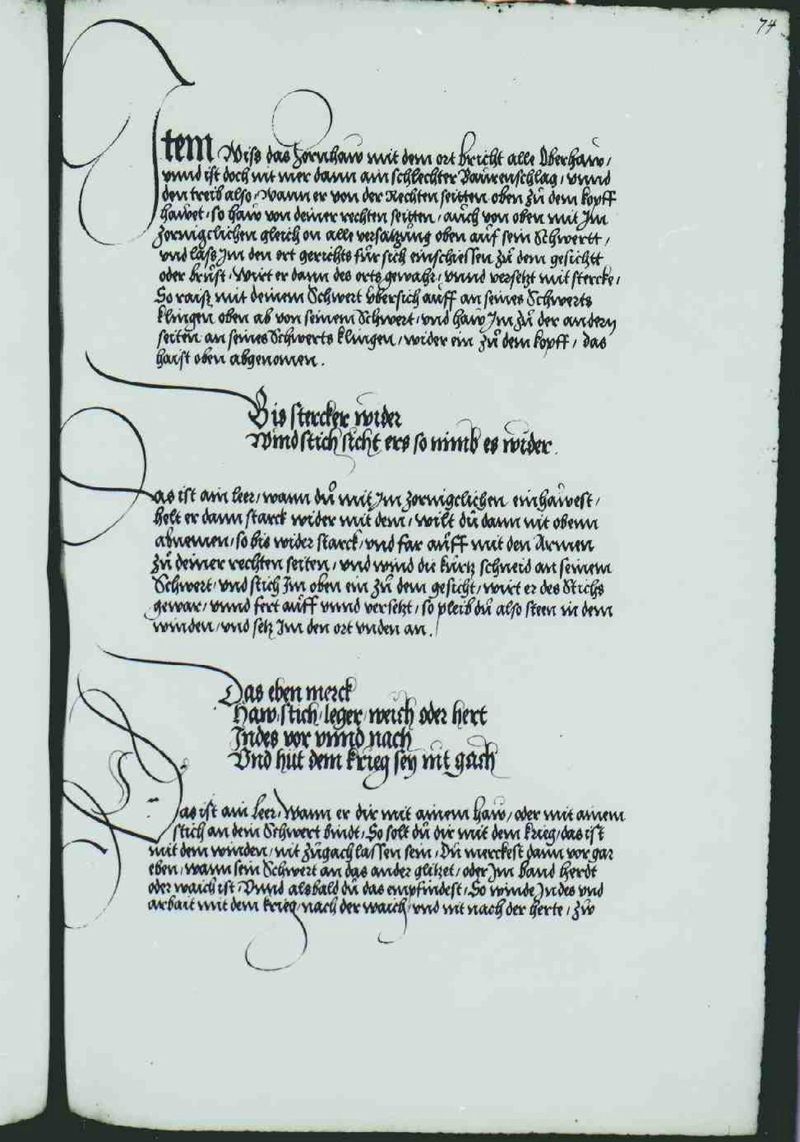 74
Item Wiss das Zornhaw mit dem ort bricht alle Oberhaw /
vnnd ist doch nit mer dann ain schlechter Baurenschlag / vnnd
den treib also / Wann er von der Rechten seitten oben zů dem kopff
hawet / so haw von deiner rechten seitten / auch von oben mit Im
zornigclichen gleich on alle versatzung oben auf sein Schwertt /
vnd lass Im den ort gerichts für sich einschiessen zů dem gesichtt
oder brust / Wirt er dann des orts gewahr / vnnd versetzt mit stercke /
So raisz mit deinem Schwert vbersich auff an seines Schwerts
klingen oben ab von seinem Schwert / vnd haw Im zů der andern
seiten an seines Schwerts klingen / wider ein zů dem kopff / das
haist oben abgenomen .
Bis stercker wider
Wind stich sicht ers so nimb es wider .
Das ist ain leer / wann dů mit Im zornigclichen einhawest /
helt er dann starck wider mit dem / wilt dů dann nit obenn
abnemen / so bis wider starck / vnd far auff mit den Armen
zů deiner rechten seiten / vnd wind die kurtz schneid an seinem
Schwert / vnd stich Im oben ein zů dem gesicht / wirt er des Stichs
gewar / vnnd fert auff vnnd versetzt / so pleib dů also steen in dem
winden / vnd setz Im den ort vnden an .
Das eben merck
Haw / stich / leger / weich oder hert
Indes vor vnnd nach
Vnd hut dem krieg sey nit gach
Das ist ain leer / Wann er dir mit ainem haw / oder mit ainem
stich an dem Schwert bindt / So solt dů dir mit dem krieg / das ist
mit dem winden / nit zůgach lassen sein / Dů merckest dann vor gar
eben / wann sein Schwert an das ander glitzet / oder Im band herdt
oder waich ist / Vnnd alsbald dů das empfindest / So winde Indes vnd
arbait mit dem krieg / nach der waich / vnd nit nach der herte / zůw